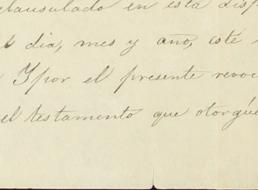 clausulado en esta disp
dia, mes y año, este
Y por el presente revoc
el testamento que otorgué